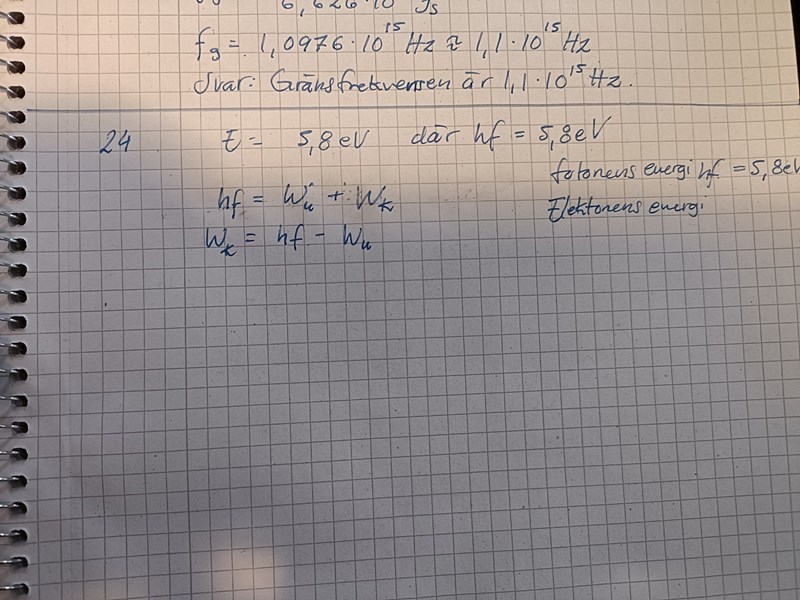 6,626·10 Js
fg = 1,0976·10¹⁵ Hz ≈ 1,1·10¹⁵ Hz
Svar: Gränsfrekvensen är 1,1·10¹⁵ Hz.
24 E = 5,8 eV där hf = 5,8 eV
fotonens energi hf = 5,8 eV
hf = Wu + Wk
Elektonens energi
Wk = hf - Wu